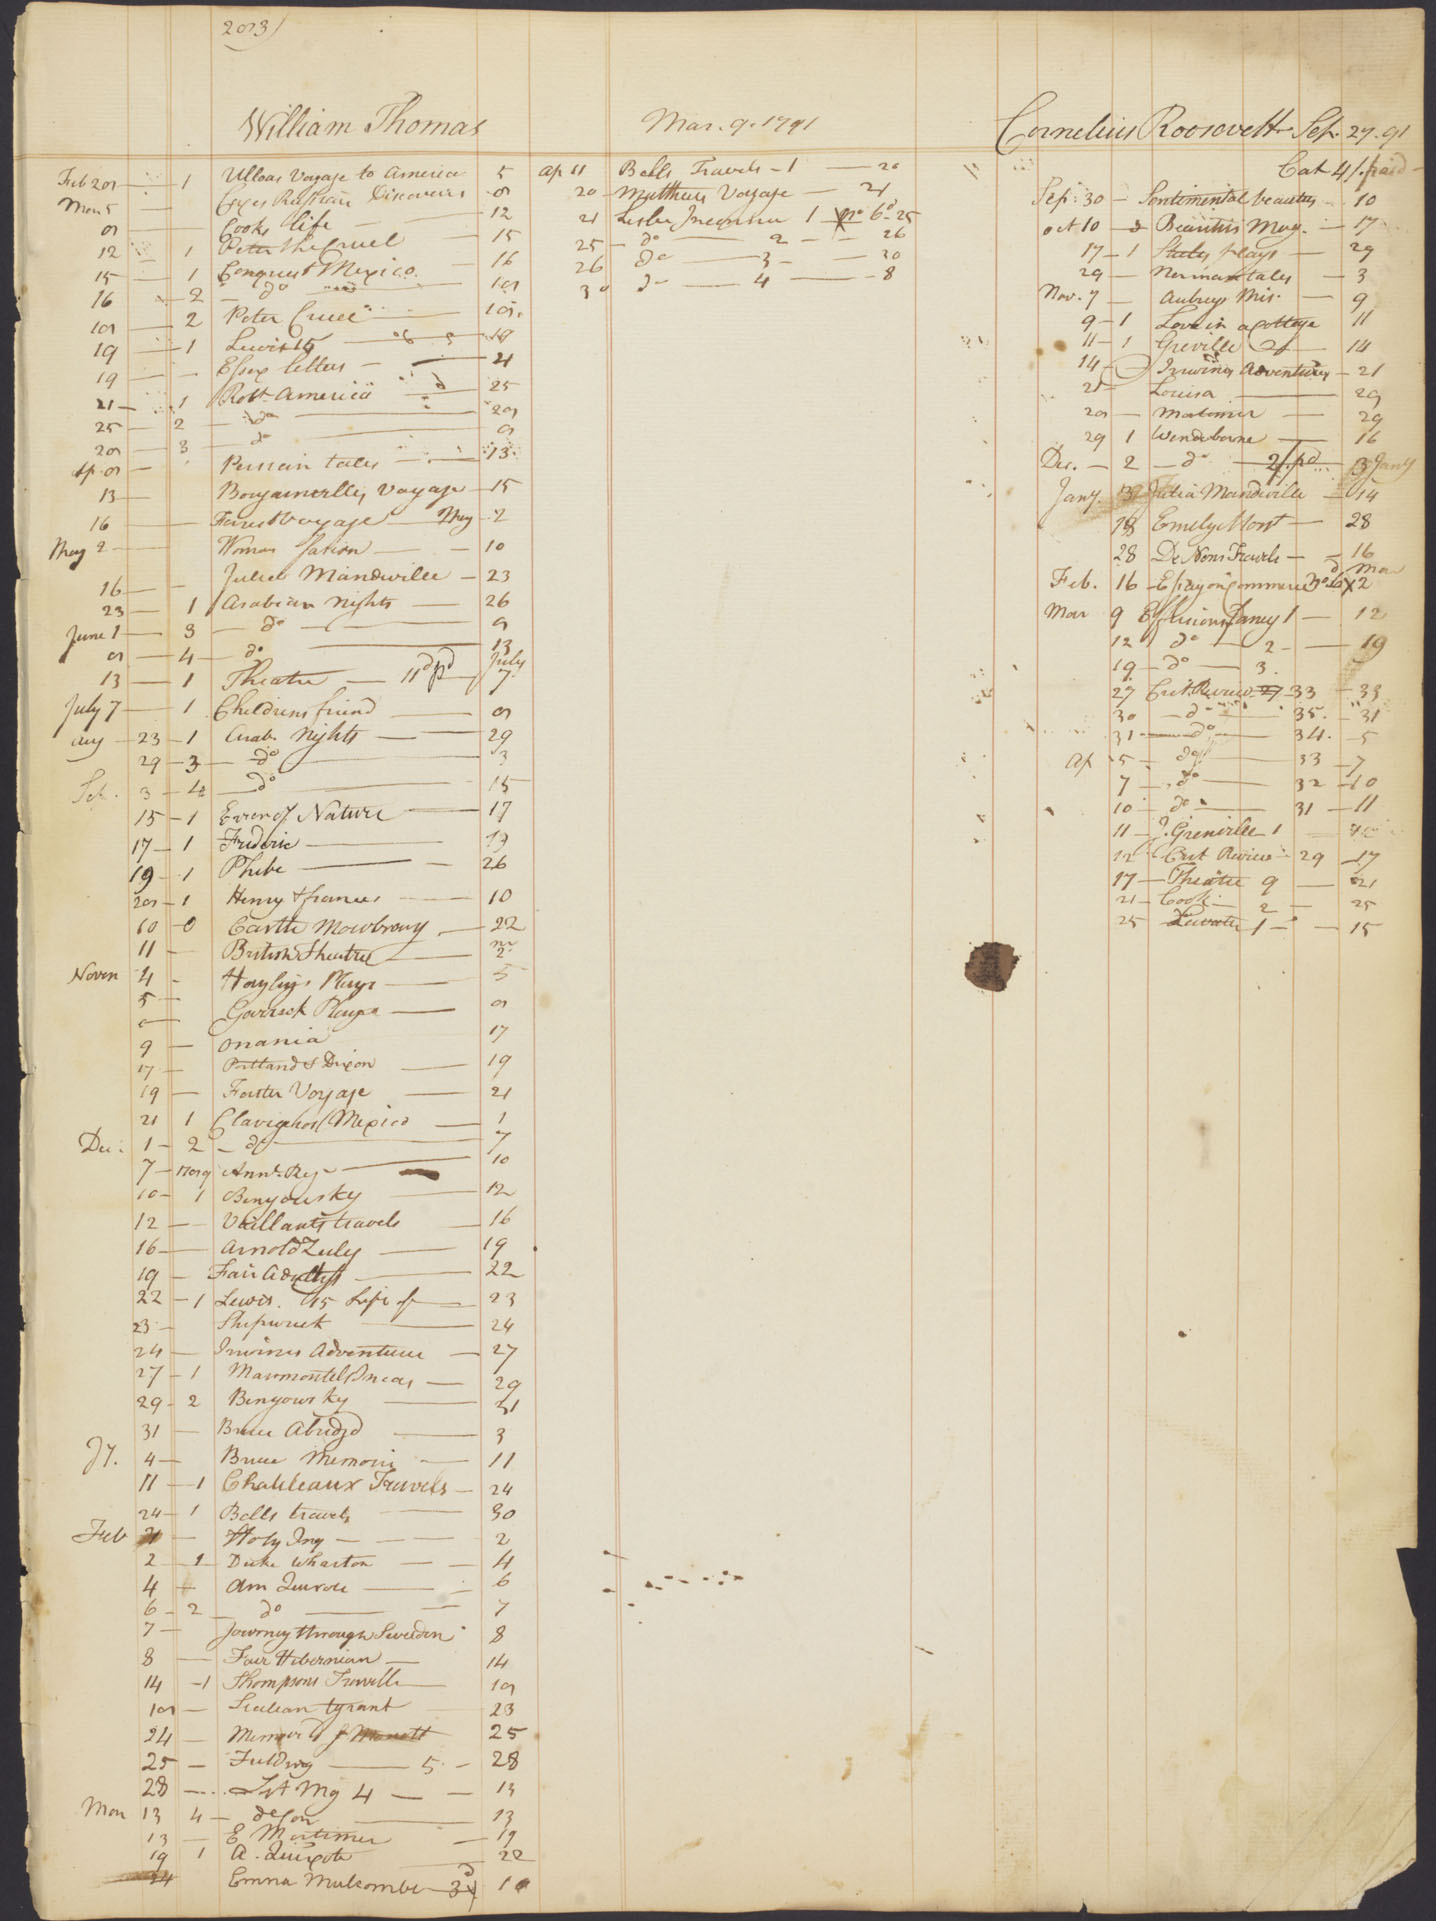 William Thomas
Feb 1 Ulloas Voyage to America 5
Mar 5 Coxes Russian Discoveries
Cooks life 12
12 1 Peter the Cruel 15
15 1 Conquest Mexico 16
16 2 do
2 Peter Cruel
19 1 Lewis
19 Essex letters 21
21 1 Robt America 25
25 2 do
3 do
Ap. Persian tales 13
13 Bougainvilles Voyage 15
16 Forrest Voyage May 2
May 2 Woman fation 10
16 Julia Mandeville 23
23 1 Arabian Nights 26
June 1 3 do
4 do 13
13 1 Theatre 11d pd July 7
July 7 1 Childrens friend
Aug 23 1 Arab. Nights 29
29 3 do 3
Sep. 3 4 do 15
15 1 Error of Nature 17
17 1 Frideric 19
19 1 Phebe 26
1 Henry & frances 10
10 0 Castle Mowbrowy 22
11 British Theatre nr 2
Novem 4 Hayleys Plays 5
5 Garrick Plays
9 onania 17
17 Portland & Dixon 19
19 Forster Voyage 21
21 1 Clavighero Mexico 1
Dec. 1 2 do 7
7 Annl. Reg 10
10 1 Benyousky 12
12 Vaillants travels 16
16 Arnold Zuly 19
19 Fair Adultss 22
22 1 Lewis 15 Life of 23
23 Shipwreck 24
24 Irwines Adventure 27
27 1 Marmontels Incas 29
29 2 Benyowsky 31
31 Bruce Abridgd 3
Jy. 4 Bruce Memoirs 11
11 1 Chatileaux Travels 24
24 1 Bells travels 30
Feb Holy Inq 2
2 1 Duke Wharton 4
4 Am 6
6 2 do 7
7 Journey through Sweden 8
8 Fair Hibernian 14
14 1 Thompsons Travells
Sicilean tyrant 23
24 Memoirs of 25
25 Fielding 5 28
28 Mg 4 13
Mar 13 4 13
13 E Mortimer 19
19 1 A. Quixote 22
24 Emma Mulcombe 3d
Mar. 9. 1791
Ap 11 Bells Travels 1 20
20 Matthews Voyage 21
21 1 No 6d 25
25 do 2 26
26 do 3 30
30 do 4 8
Cornelius Roosevelt Sep. 27. 91
Cat 4/. paid
Sep. 30 Sentimental beauties 10
Oct 10 Beauties Mag. 17
17 1 plays 29
29 Norman tales 3
Nov. 7 Aubreys Mis. 9
9 1 Love in a Cottage 11
11 1 Greville 14
14 Irwines Adventures 21
21 Louisa
Mortimer 29
29 1 Wendeborne 16
Dec. 2 do 2/. pd 3 Jany
Jany. 3 Julia Mandeville 14
18 Emely Mont 28
28 De Nons Travels 16
Feb. 16 Essay on Commerce Mar 2
Mar 9 Effusions Fancy 1 12
12 do 2 19
19 do 3.
27 Crit. Review 27 33 33
30 do 35. 31
31 do 34. 5
Ap 5 do 33 7
7 do 32 10
10 do 31 11
11 J. Grenville 1
12 Crit Review 29 17
17 Theatre 9 21
21 Cook 2 25
25 Lavater 1 15